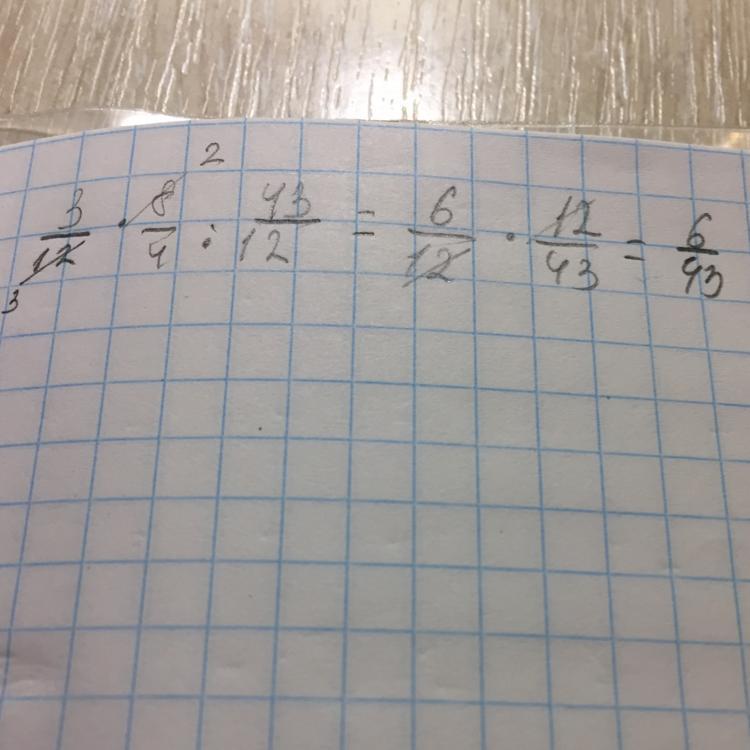 3/12 · 8/4 : 43/12 = 6/12 · 12/43 = 6/43
2
3